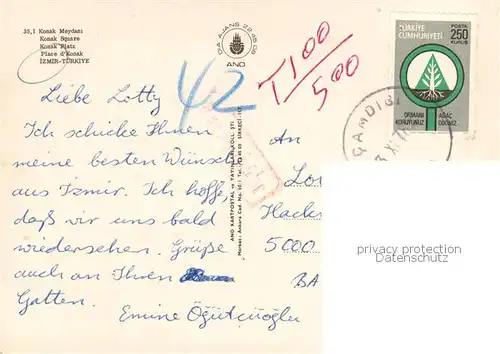 35,1 Konak Meydanı
Konak Square
Konak Platz
Place d'Konak
İZMİR-TÜRKİYE
ANO
TÜRKİYE
CUMHURİYETİ
POSTA
250
KURUŞ
ORMANI
KORUYUNUZ
AĞAÇ
DİKİNİZ
T100
500
42
Liebe Lotty
Ich schicke Ihnen
meine besten Wünsch
aus Izmir. Ich hoffe,
daß wir uns bald
wiedersehen. Grüße
auch an Ihren
Gatten.
Emine Öğütçüoğlu
An
Hacker
5000
BA
privacy protection
Datenschutz